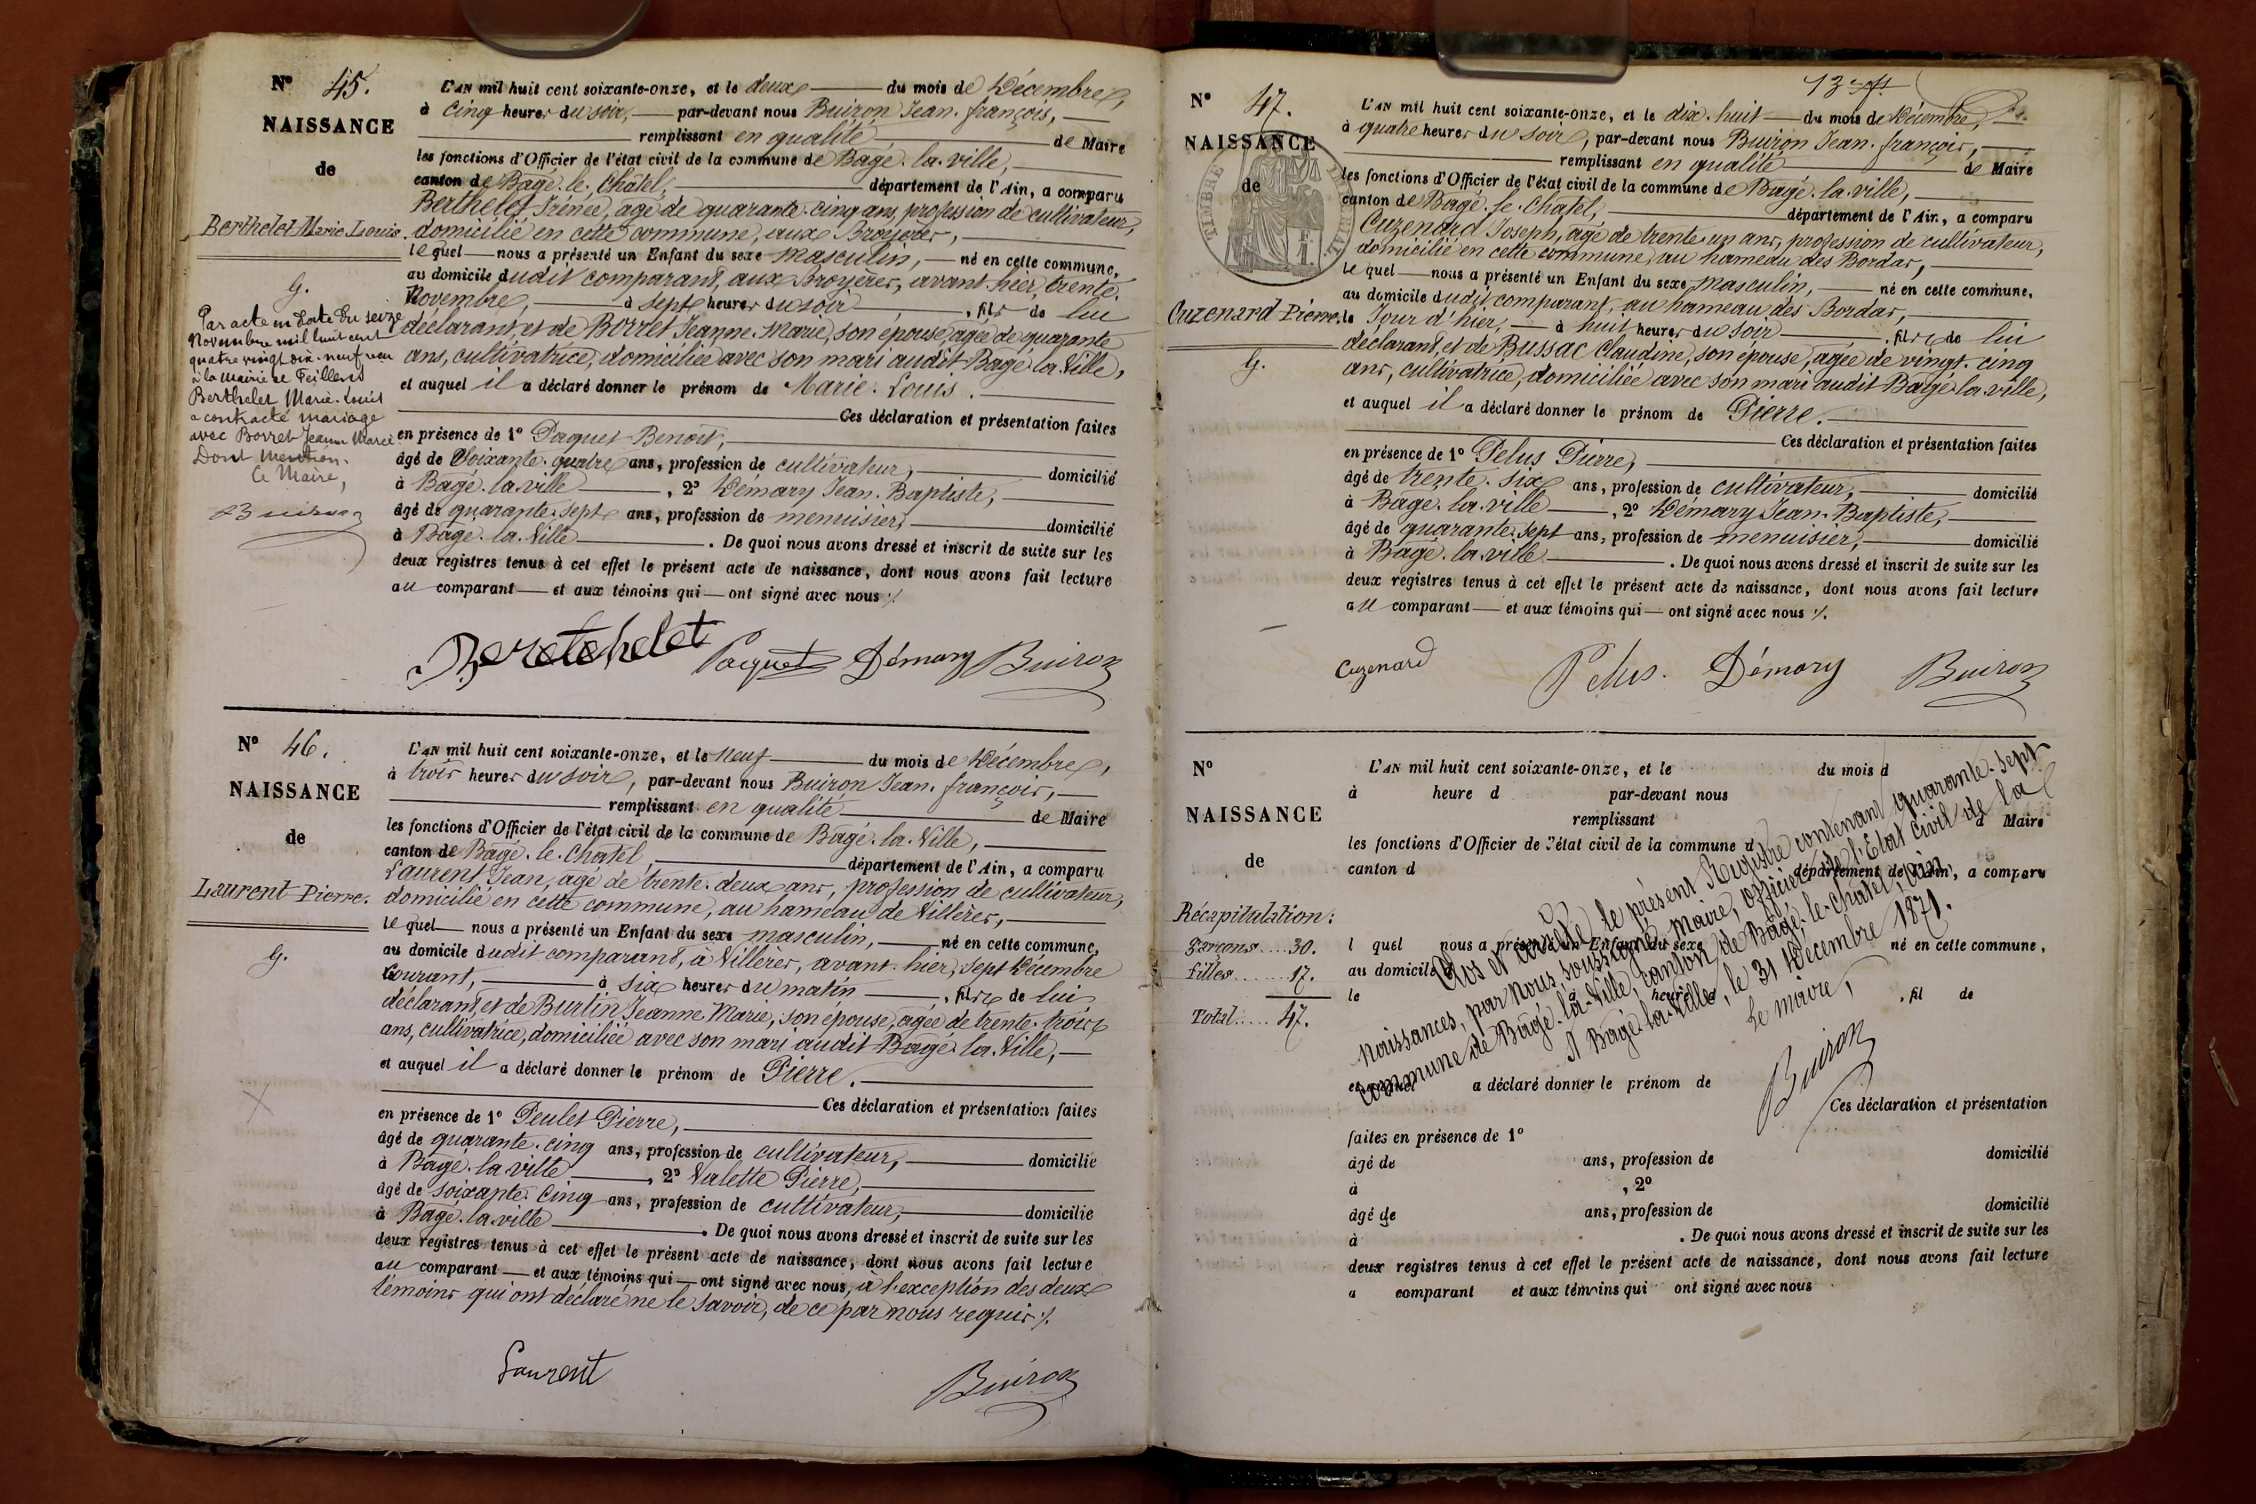 Nº 45.
NAISSANCE
de
Berthelet Marie Louis.
G.
Par acte en date du seize
Novembre mil huit cent
quatre vingt dix-neuf reçu
à la Mairie de Feillens
Berthelet Marie-Louis
a contracté mariage
avec Borret Jeanne Marie
Dont Mention.
Le Maire,
Buiron
L'AN mil huit cent soixante-onze, et le deux du mois de Décembre,
à cinq heures du soir, par-devant nous Buiron Jean-françois,
remplissant en qualité de Maire
les fonctions d'Officier de l'état civil de la commune de Bagé-la-ville,
canton de Bagé-le-Châtel, département de l'Ain, a comparu
Berthelet Irénée, agé de quarante-cinq ans, profession de cultivateur,
domicilié en cette commune, aux Broyères,
lequel nous a présenté un Enfant du sexe masculin, né en cette commune,
au domicile dudit comparant, aux Broyères, avant-hier, trente
Novembre, à sept heures du soir, fils de lui
déclarant, et de Borret Jeanne-Marie, son épouse, agée de quarante
ans, cultivatrice, domiciliée avec son mari audit Bagé-la-Ville,
et auquel il a déclaré donner le prénom de Marie-Louis.
Ces déclaration et présentation faites
en présence de 1º Paquet Benoît,
âgé de soixante-quatre ans, profession de cultivateur, domicilié
à Bagé-la-ville, 2º Démary Jean-Baptiste,
âgé de quarante-sept ans, profession de menuisier, domicilié
à Bagé-la-Ville. De quoi nous avons dressé et inscrit de suite sur les
deux registres tenus à cet effet le présent acte de naissance, dont nous avons fait lecture
au comparant et aux témoins qui ont signé avec nous
Beretehelet Paquet Démary Buiron
Nº 46.
NAISSANCE
de
Laurent Pierre.
G.
L'AN mil huit cent soixante-onze, et le neuf du mois de Décembre,
à trois heures du soir, par-devant nous Buiron Jean-françois,
remplissant en qualité de Maire
les fonctions d'Officier de l'état civil de la commune de Bagé-la-Ville,
canton de Bagé-le-Châtel, département de l'Ain, a comparu
Laurent Jean, agé de trente-deux ans, profession de cultivateur,
domicilié en cette commune, au hameau de Villères,
lequel nous a présenté un Enfant du sexe masculin, né en cette commune,
au domicile dudit comparant, à Villères, avant-hier, sept Décembre
courant, à six heures du matin, fils de lui
déclarant, et de Burtin Jeanne Marie, son épouse, agée de trente-trois
ans, cultivatrice, domiciliée avec son mari audit Bagé-la-Ville,
et auquel il a déclaré donner le prénom de Pierre.
Ces déclaration et présentation faites
en présence de 1º Peulet Pierre,
âgé de quarante-cinq ans, profession de cultivateur, domicilié
à Bagé-la-ville, 2º Valette Pierre,
âgé de soixante-cinq ans, profession de cultivateur, domicilié
à Bagé-la-ville. De quoi nous avons dressé et inscrit de suite sur les
deux registres tenus à cet effet le présent acte de naissance, dont nous avons fait lecture
au comparant et aux témoins qui ont signé avec nous, à l'exception des deux
témoins qui ont déclaré ne le savoir, de ce par nous requis
Laurent Buiron
Nº 47.
NAISSANCE
de
TIMBRE
Cuzenard Pierre.
G.
L'AN mil huit cent soixante-onze, et le dix-huit du mois de Décembre,
à quatre heures du soir, par-devant nous Buiron Jean-françois,
remplissant en qualité de Maire
les fonctions d'Officier de l'état civil de la commune de Bagé-la-ville,
canton de Bagé-le-Châtel, département de l'Ain, a comparu
Cuzenard Joseph, agé de trente-un ans, profession de cultivateur,
domicilié en cette commune, au hameau des Bordas,
lequel nous a présenté un Enfant du sexe masculin, né en cette commune,
au domicile dudit comparant, au hameau des Bordas,
le Jour d'hier, à huit heures du soir, fils de lui
déclarant, et de Bussac Claudine, son épouse, agée de vingt-cinq
ans, cultivatrice, domiciliée avec son mari audit Bagé-la-ville,
et auquel il a déclaré donner le prénom de Pierre.
Ces déclaration et présentation faites
en présence de 1º Pelus Pierre,
âgé de trente-six ans, profession de cultivateur, domicilié
à Bagé-la-ville, 2º Démary Jean-Baptiste,
âgé de quarante-sept ans, profession de menuisier, domicilié
à Bagé-la-ville. De quoi nous avons dressé et inscrit de suite sur les
deux registres tenus à cet effet le présent acte de naissance, dont nous avons fait lecture
au comparant et aux témoins qui ont signé avec nous
Cuzenard Pelus. Démary Buiron
Nº
NAISSANCE
de
Récapitulation:
garçons 30.
filles 17.
Total 47.
L'AN mil huit cent soixante-onze, et le du mois d
à heure d par-devant nous
remplissant d Maire
les fonctions d'Officier de l'état civil de la commune d
canton d département de l'Ain, a comparu
l quel nous a présenté un Enfant du sexe né en cette commune,
au domicile
le à heure d, fil de
et auquel a déclaré donner le prénom de
Ces déclaration et présentation
faites en présence de 1º
âgé de ans, profession de domicilié
à , 2º
âgé de ans, profession de domicilié
à . De quoi nous avons dressé et inscrit de suite sur les
deux registres tenus à cet effet le présent acte de naissance, dont nous avons fait lecture
a comparant et aux témoins qui ont signé avec nous
Clos et arrêté le présent Registre contenant quarante-sept
Naissances, par Nous, soussigné, Maire, officier de l'Etat civil de la
commune de Bagé-la-Ville, canton de Bagé-le-Châtel, Ain,
A Bagé-la-Ville, le 31 Décembre 1871.
Le maire,
Buiron